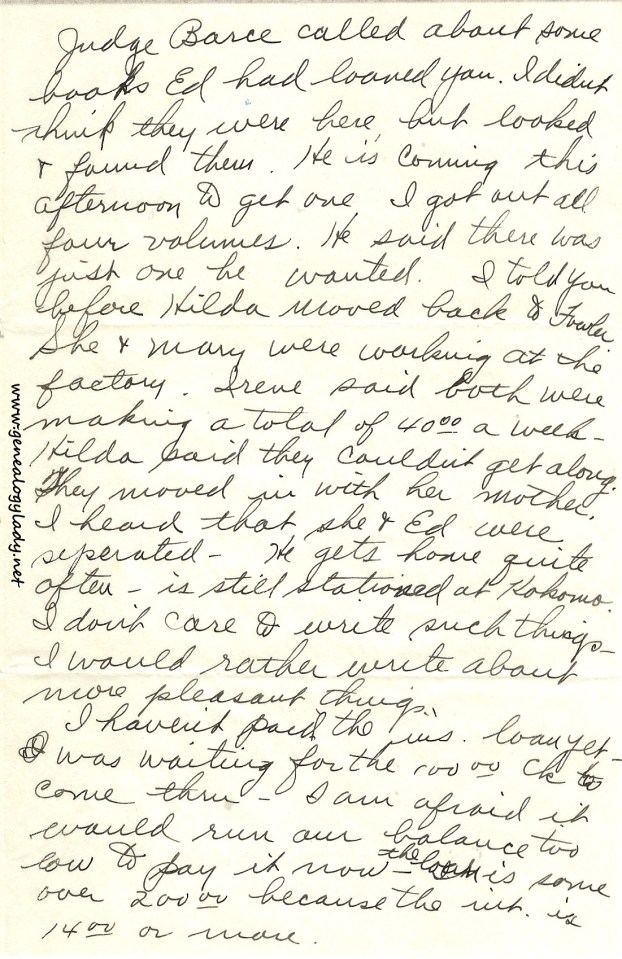 Judge Barce called about some
books Ed had loaned you. I didn't
think they were here, but looked
& found them. He is coming this
afternoon to get one I got out all
four volumes. He said there was
just one he wanted. I told you
before Hilda moved back to Fowler
She & Mary were working at the
factory. Irene said both were
making a total of 40⁰⁰ a week-
Hilda said they couldn't get along.
They moved in with her mother.
I heard that she & Ed were
seperated - He gets home quite
often - is still stationed at Kokomo.
I don't care to write such things-
I would rather write about
more pleasant things.
I haven't paid the ins. loan yet-
I was waiting for the 100⁰⁰ ck to
come thru - I am afraid it
would run our balance too
low to pay it now - the loan is some
over 200⁰⁰ because the int. is
14⁰⁰ or more.
www.genealogylady.net